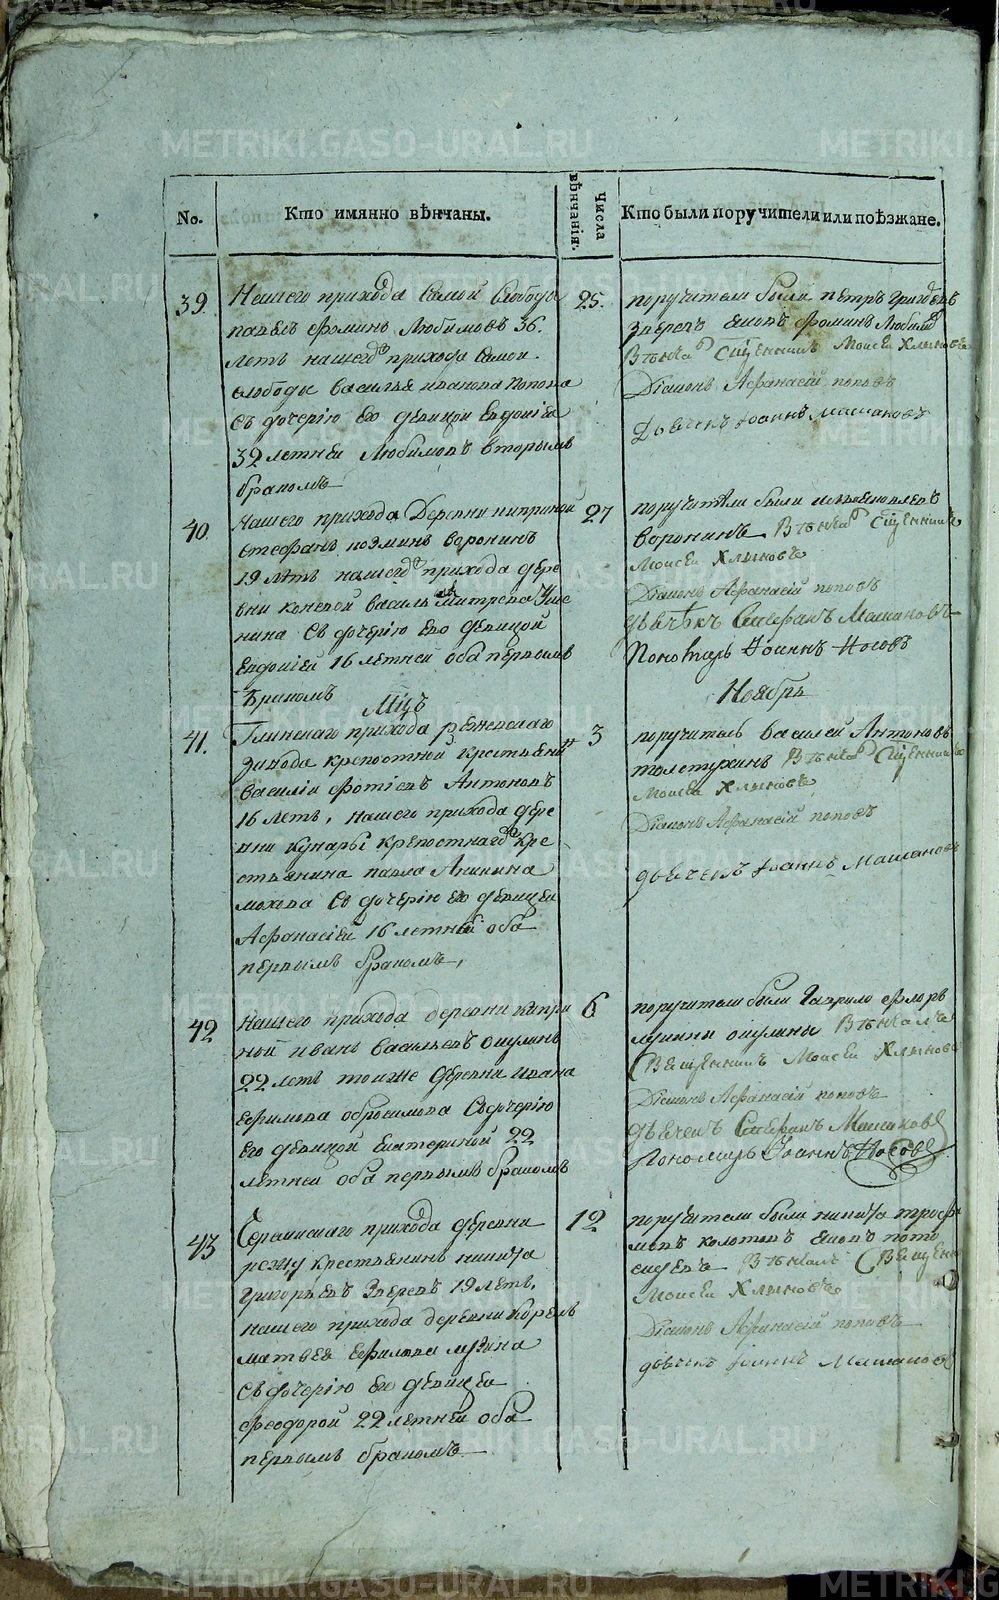 No.
Кто имянно вѣнчаны.
Числа вѣнчанія.
Кто были поручители или поѣзжане.
39.
Нашего прихода самой слободы
павелъ фоминъ Любимовъ 36.
летъ нашего прихода самои
слободы василья иванова попова
съ дочерію его девицои Евдокіеи
32 летнеи Любимовъ вторымъ
бракомъ
25.
поручители были петръ григорьевъ
Зверевъ фоминъ Любимовъ
Вѣнчалъ Сщенникъ Моисеи Хлыновъ
Діаконъ Афанасій поповъ
Дьячекъ Іоаннъ Машановъ
40.
Нашего прихода Деревни киприной
стефанъ козминъ воронинъ
19 летъ нашего прихода дере
вни коневой василья Митрева
нина съ дочерію его девицой
Евдокіей 16 летней оба первымъ
бракомъ
27
поручители были
воронинъ Вѣнчалъ Сщенникъ
Моисеи Хлыновъ
Діаконъ Афанасій поповъ
дьячекъ Стефанъ Машановъ
Пономарь Іоаннъ Носовъ
Мцъ
Ноябрь
41.
Глинскаго прихода режевскаго
завода крепостной крестьянинъ
василіи фотіевъ Антоновъ
16 летъ, нашего прихода дере
вни кунары крепостнаго кре
стьянина павла Аникина
мохова съ дочерію его девицеи
Афанасіеи 16 летней оба
первымъ бракомъ,
3
поручитель василей Антоновъ
толстухинъ Вѣнчалъ Сщенникъ
Моисеи Хлыновъ
Діаконъ Афанасій поповъ
дьячекъ Іоаннъ Машановъ
42
Нашего прихода деревни кипри
ной иванъ васильевъ
22 летъ тоиже деревни ивана
Ефимова обросимова съ дочерію
его девицой Екатериной 22
летнеи оба первымъ бракомъ
6
поручители были Гаврило флоръ
Вѣнчалъ
Священникъ Моисеи Хлыновъ
Діаконъ Афанасій поповъ
дьячекъ Стефанъ Машановъ
Пономарь Іоаннъ Носовъ
43
прихода деревни
крестьянинъ никита
григорьевъ Зверевъ 19 летъ,
нашего прихода деревни
матвея Ефимова
съ дочерію его девицеи
феодорой 22 летней оба
первымъ бракомъ
12
поручители были никита трофи
мовъ колотовъ
Вѣнчалъ Священникъ
Моисеи Хлыновъ
Діаконъ Афанасій поповъ
дьячекъ Іоаннъ Машановъ
METRIKI.GASO-URAL.RU